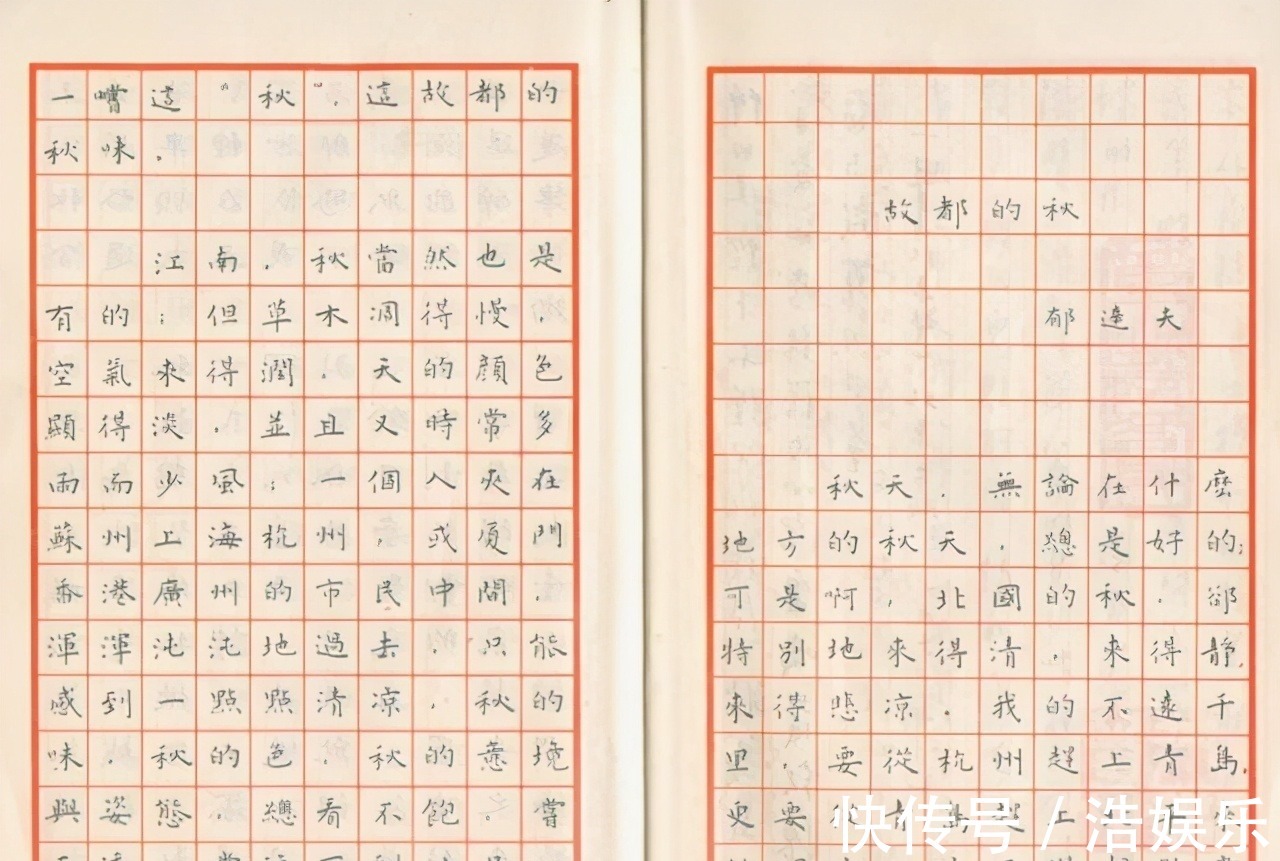 故都的秋
郁達夫
秋天,無論在什麼
地方的秋天,總是好的;
可是啊,北國的秋,卻
特別地來得清,來得靜,
來得悲涼。我的不遠千
里,要從杭州趕上青島,
更要
一嚐這“秋”,這故都的
秋味。
江南,秋當然也是
有的;但草木凋得慢,
空氣來得潤,天的顏色
顯得淡,並且又時常多
雨而少風;一個人夾在
蘇州上海杭州,或廈門
香港廣州的市民中間,
渾渾沌沌地過去,只能
感到一點點清涼,秋的
味,秋的色,秋的意境
與姿態,總看不飽。嘗
快传号 / 浩娱乐